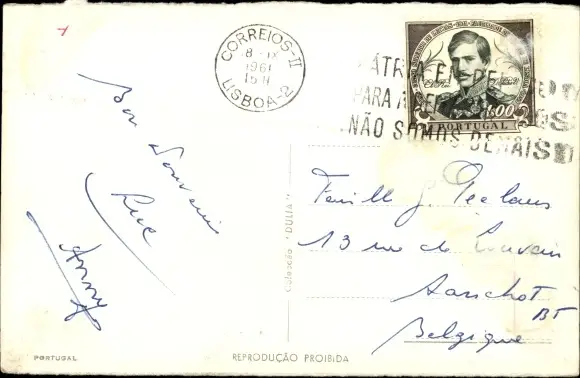 CORREIOS-II
8-IX
1961
LISBOA-2
PARA A
NÃO SOMOS DEMAIS
1$00
PORTUGAL
Bon Souvenir
Luc
Famille J. Peelaers
13 rue de Louvain
Aarschot
BT
Belgique
Colecção "DULIA"
PORTUGAL
REPRODUÇÃO PROIBIDA